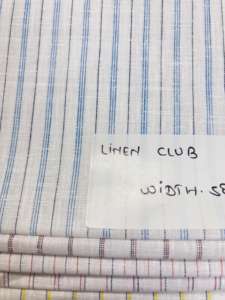 LINEN CLUB
WIDTH. 58